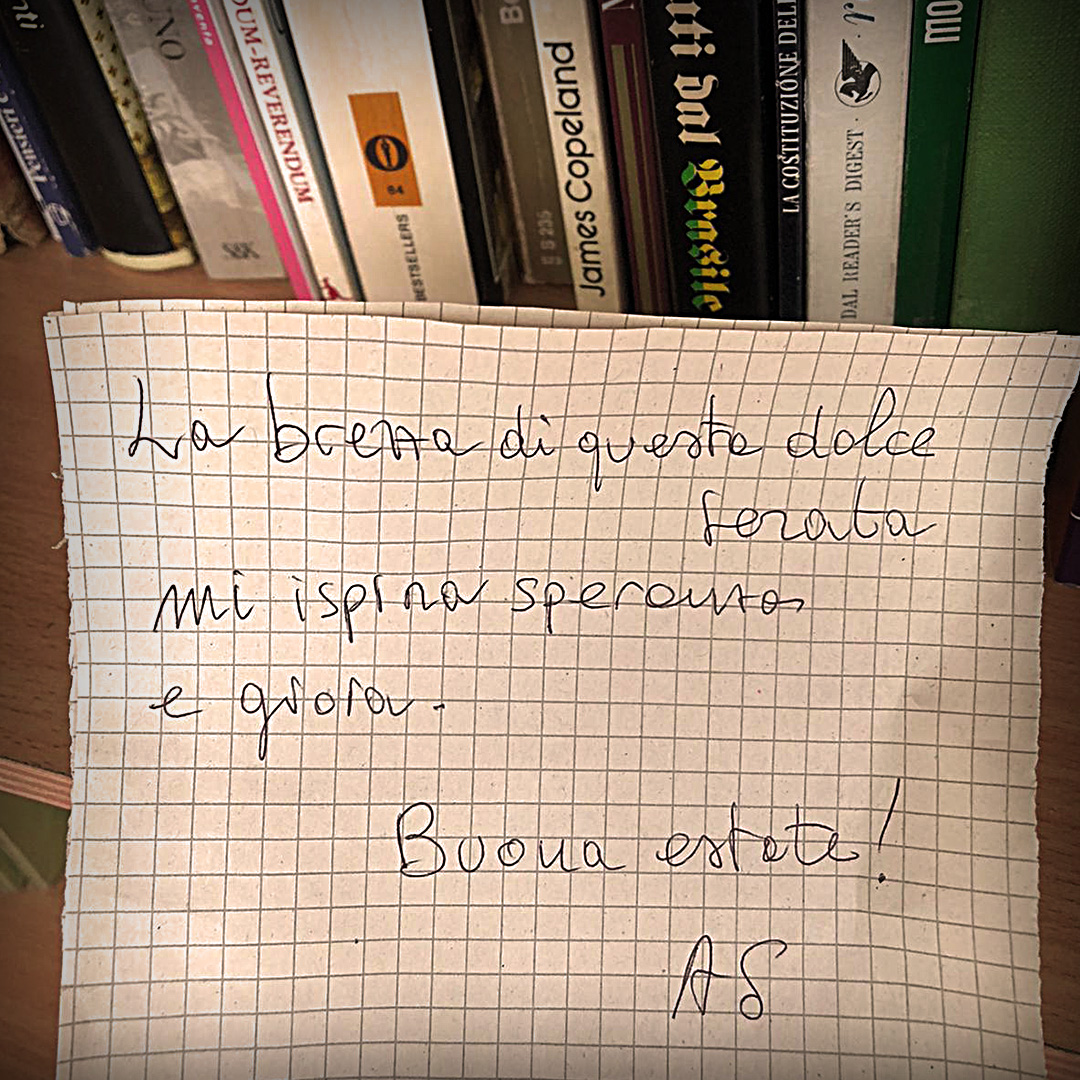 nti
UNO
evento
DUM-REVERENDUM
S&K
84
BESTSELLERS
B 235
James Copeland
uti dal Brasile
LA COSTITUZIONE DELL
DAL READER'S DIGEST
MO
La brezza di questa dolce
serata
mi ispira speranza
e gioia.
Buona estate!
AS